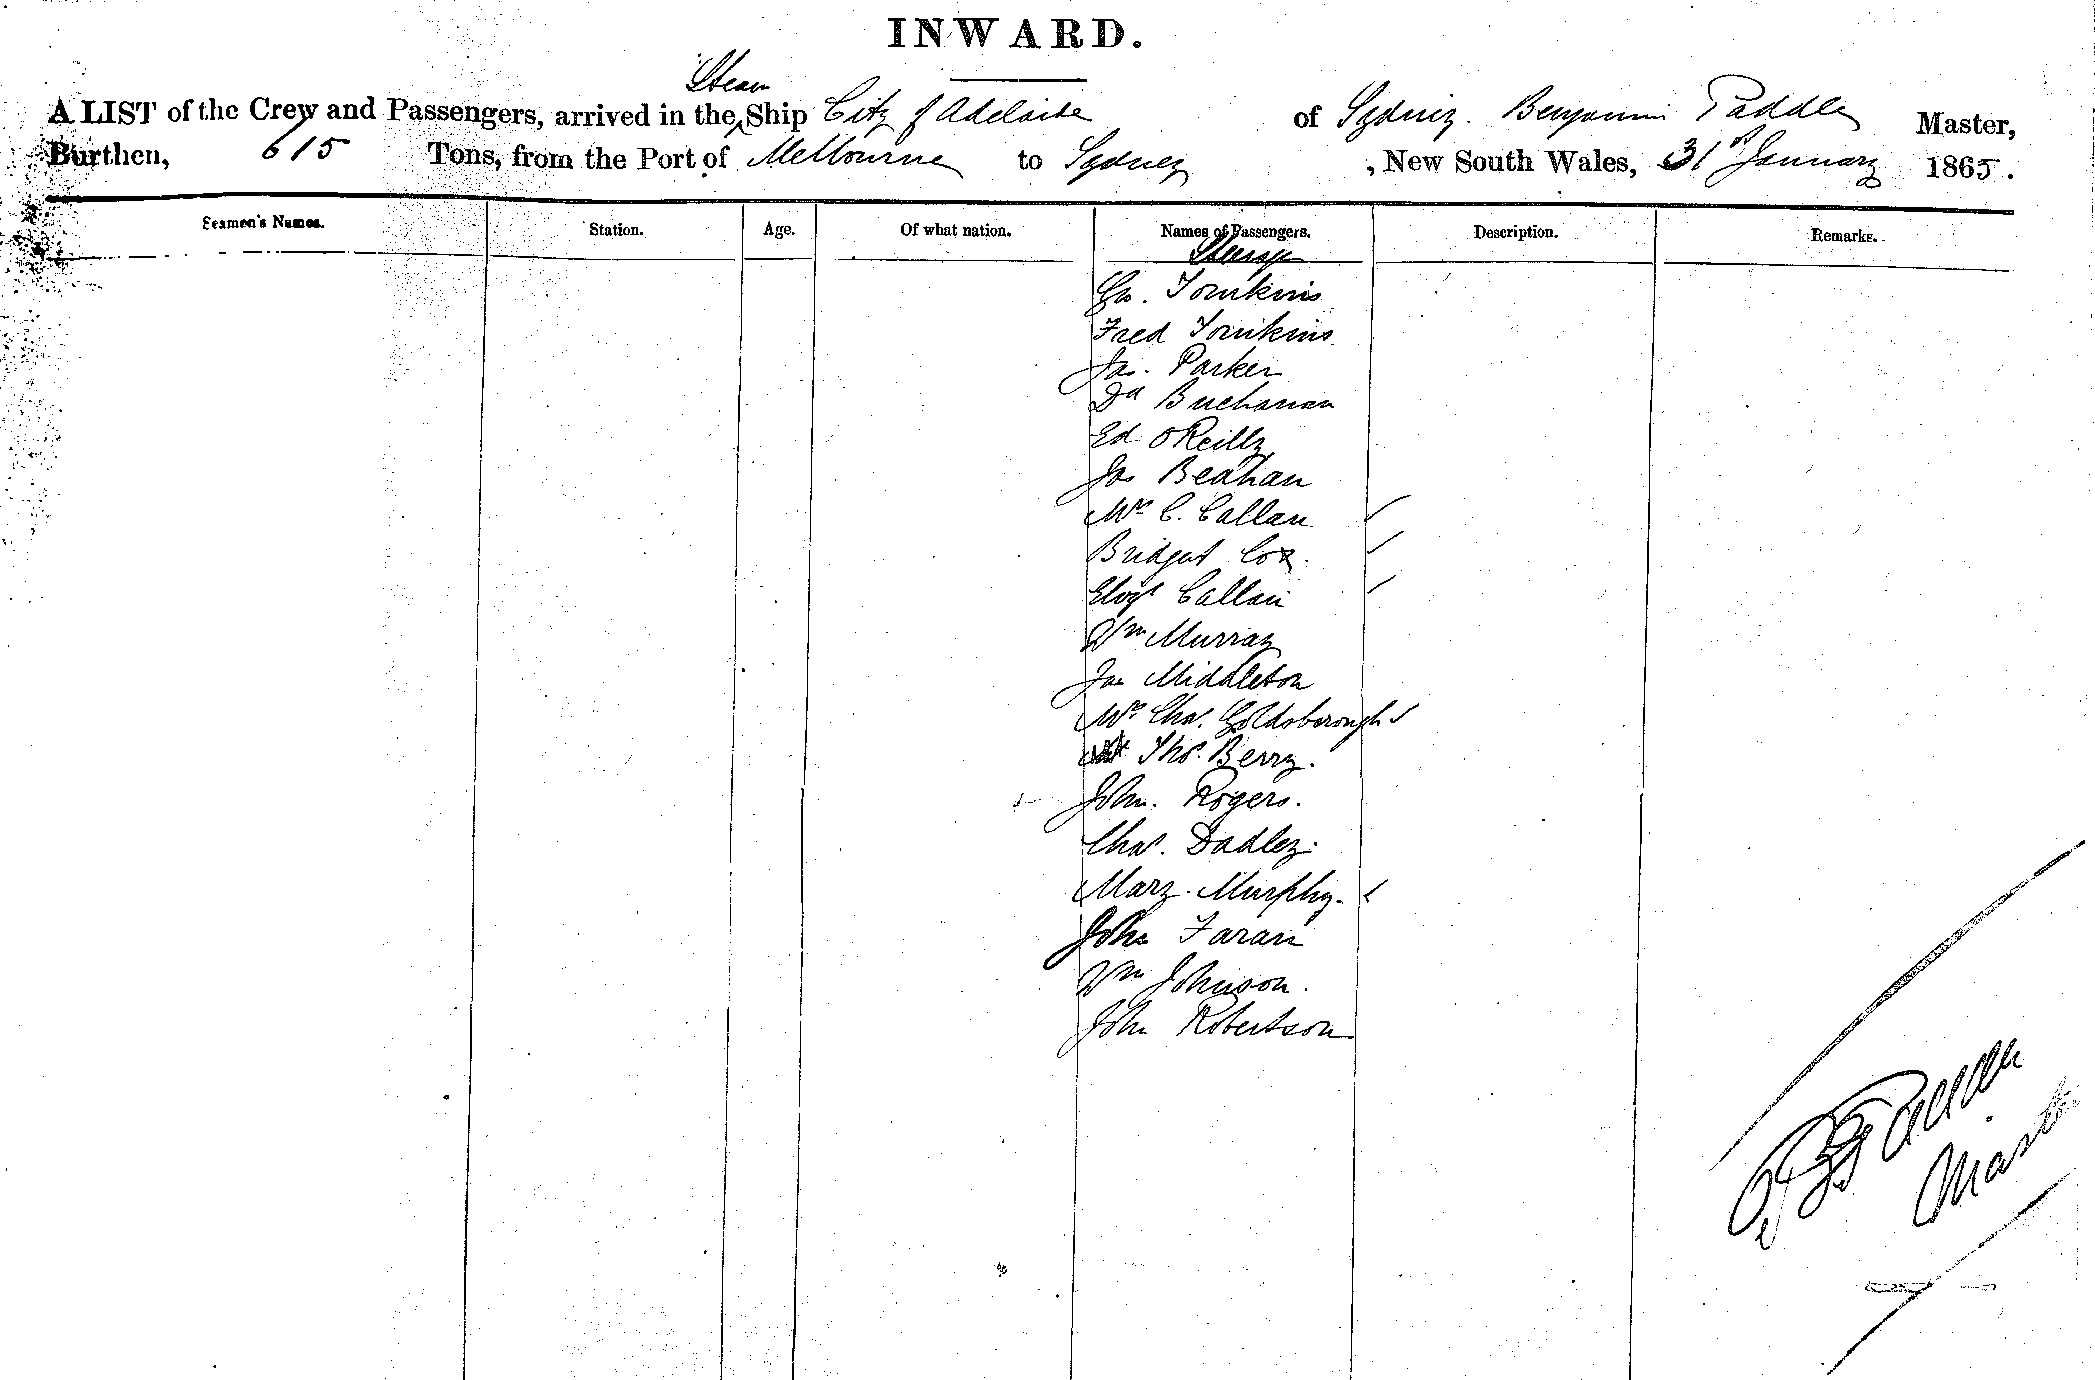 INWARD.
Steam
A LIST of the Crew and Passengers, arrived in the Ship City of Adelaide of Sydney. Benjamin Paddle Master,
Burthen, 615 Tons, from the Port of Melbourne to Sydney , New South Wales, 31st January 1865.
Seamen's Names. Station. Age. Of what nation. Names of Passengers. Description. Remarks.
Steerage
Tomkins
Fred Tomkins
Jas. Parker
Dd Buchanan
Ed OReilly
Jas Beahan
Mrs C. Callan
Bridget Cox.
Elizt Callan
Wm Murray
Jas Middleton
Mrs Chas. Goldsborough
Thos. Berry.
John. Rogers.
Chas. Dadley.
Mary. Murphy.
John Faran
Wm Johnson.
John Robertson
Master